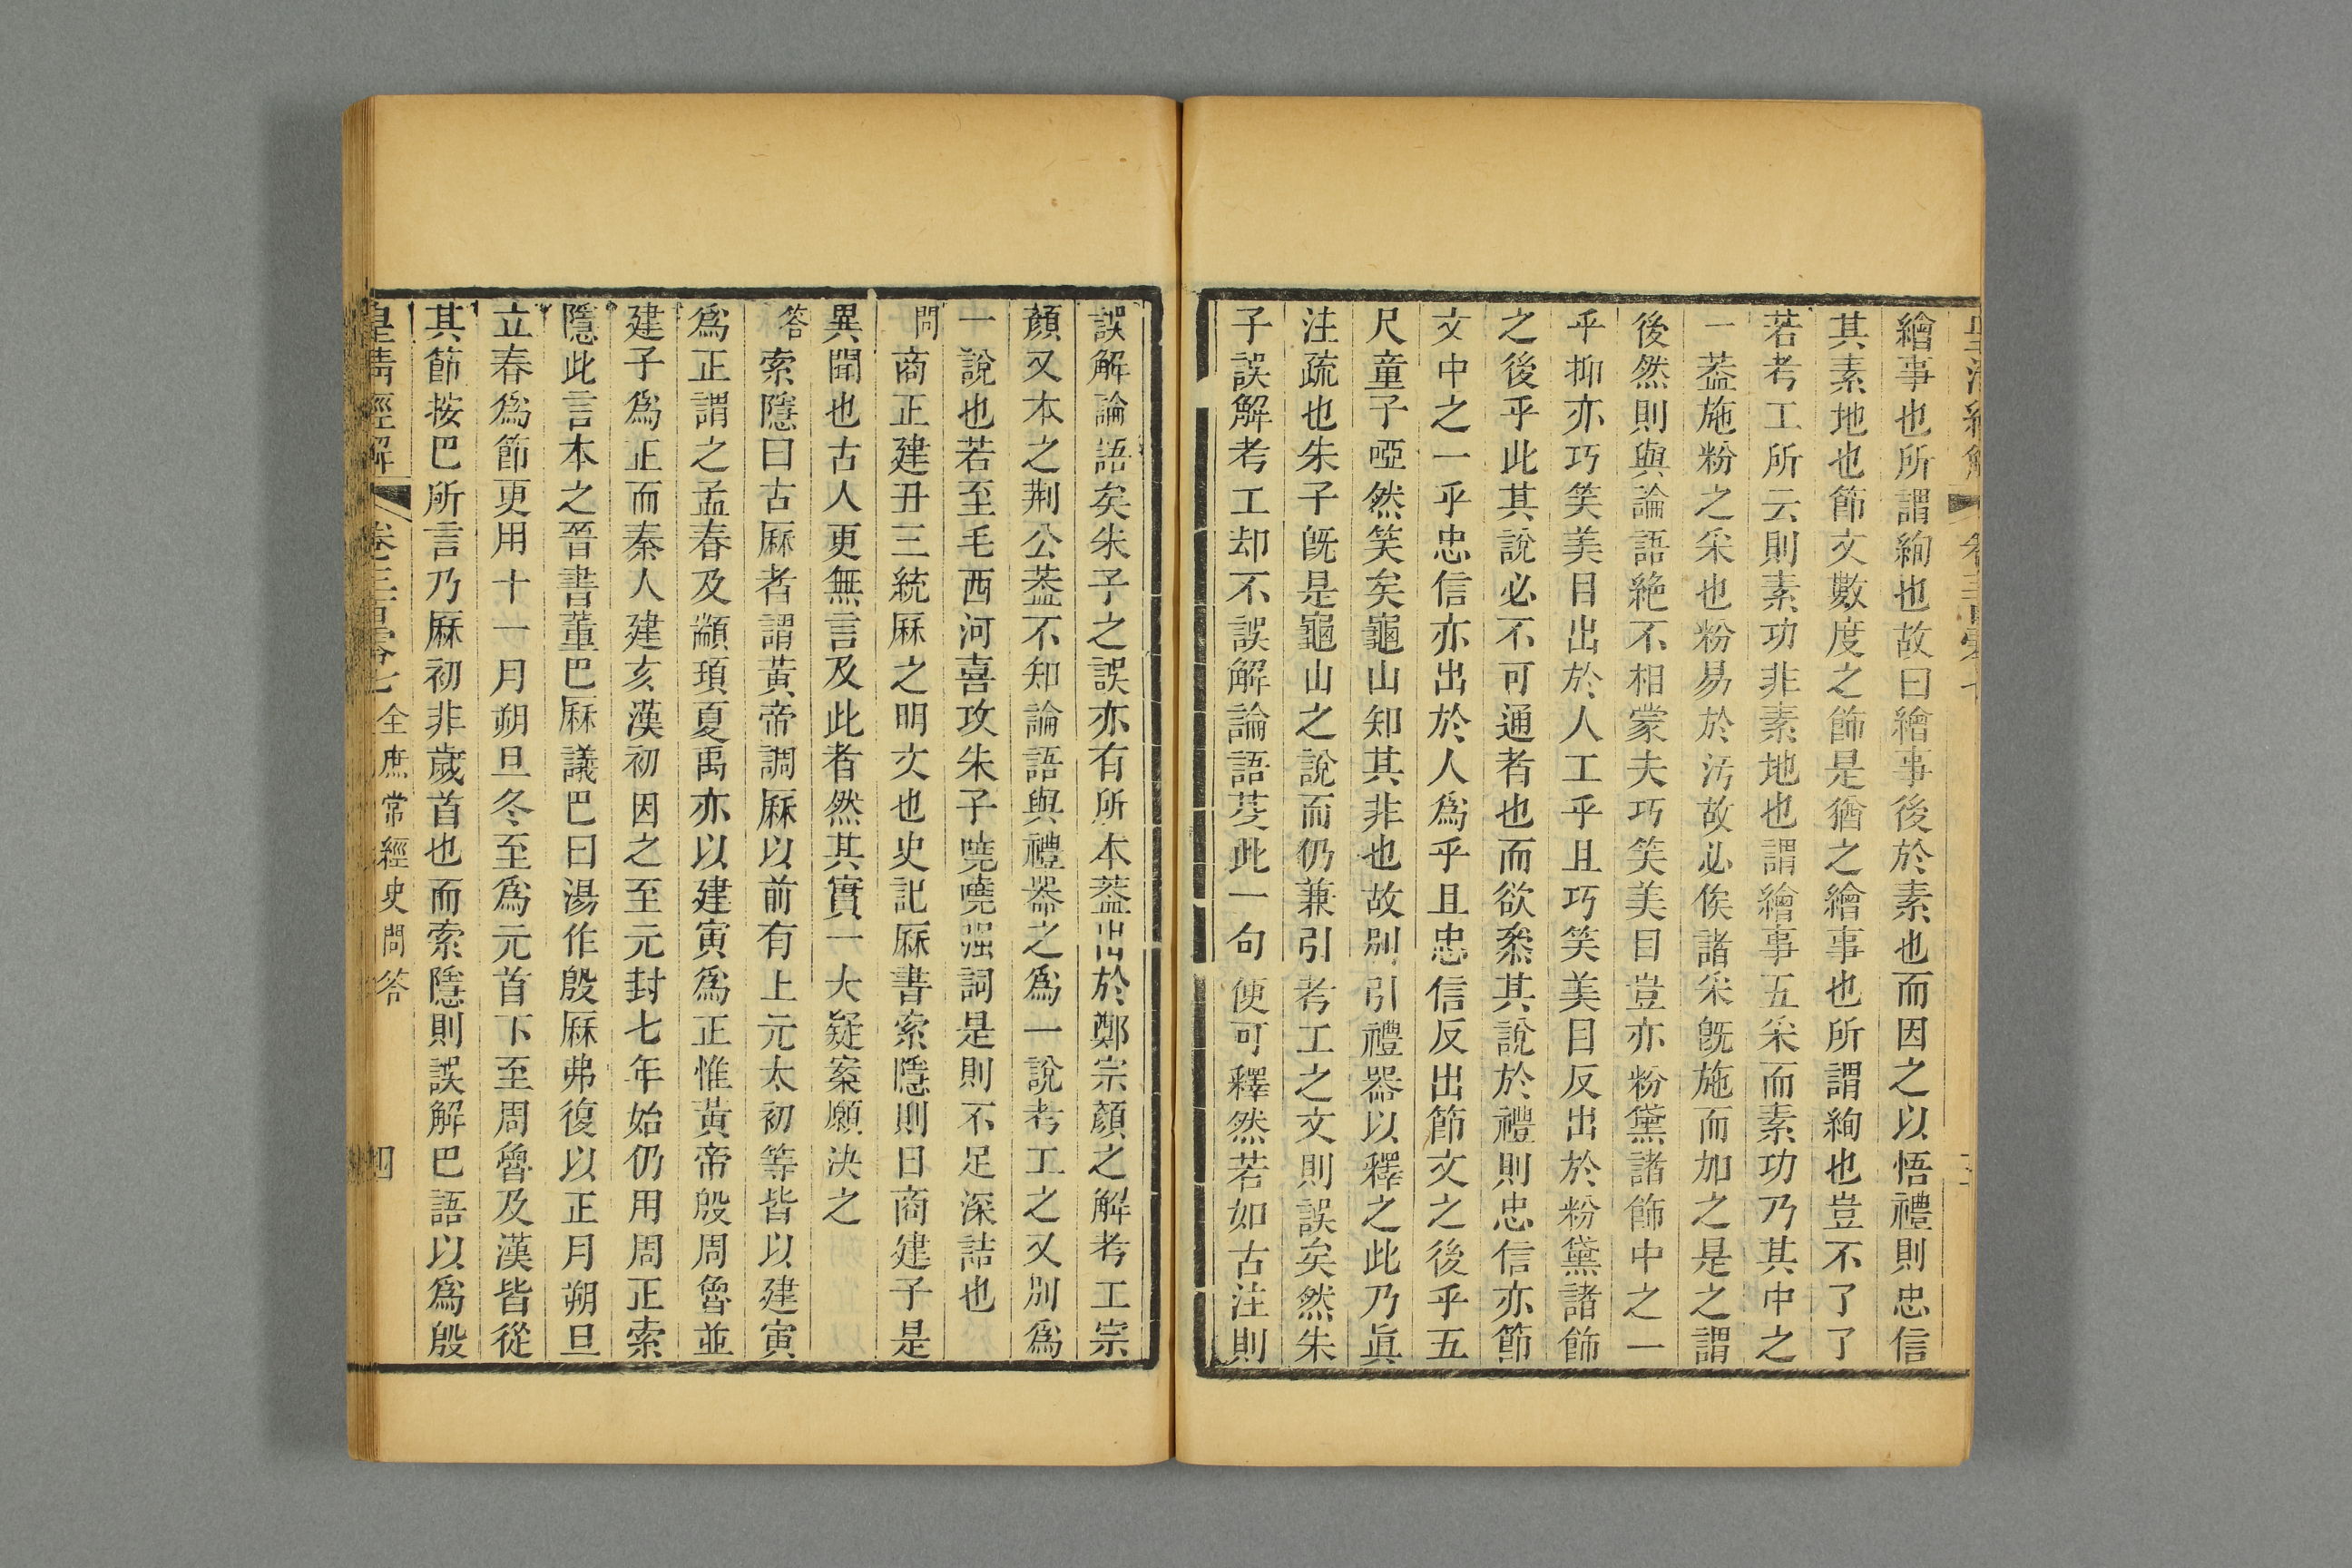 繪事也所謂絢也故曰繪事後於素也而因之以悟禮則忠信
其素地也節文數度之飾是猶之繪事也所謂絢也豈不了了
若考工所云則素功非素地也謂繪事五采而素功乃其中之
一葢施粉之采也粉易於汚故必俟諸采旣施而加之是之謂
後然則與論語絕不相蒙夫巧笑美目豈亦粉黛諸飾中之一
乎抑亦巧笑美目出於人工乎且巧笑美目反出於粉黛諸飾
之後乎此其說必不可通者也而欲叅其說於禮則忠信亦節
文中之一乎忠信亦出於人爲乎且忠信反出節文之後乎五
尺童子啞然笑矣龜山知其非也故別引禮器以釋之此乃眞
注疏也朱子旣是龜山之說而仍兼引考工之文則誤矣然朱
子誤解考工却不誤解論語芟此一句便可釋然若如古注則
誤解論語矣朱子之誤亦有所本葢出於鄭宗顏之解考工宗
顏又本之荆公葢不知論語與禮器之爲一說考工之又別爲
一說也若至毛西河喜攻朱子嘵嘵强詞是則不足深詰也
問商正建丑三統厤之明文也史記厤書索隱則曰商建子是
異聞也古人更無言及此者然其實一大疑案願決之
答索隱曰古厤者謂黃帝調厤以前有上元太初等皆以建寅
爲正謂之孟春及顓頊夏禹亦以建寅爲正惟黃帝殷周魯並
建子爲正而秦人建亥漢初因之至元封七年始仍用周正索
隱此言本之晉書董巴厤議巴曰湯作殷厤弗復以正月朔旦
立春爲節更用十一月朔旦冬至爲元首下至周魯及漢皆從
其節按巴所言乃厤初非歲首也而索隱則誤解巴語以爲殷
皇淸經解 卷三百零七 全庶常經史問答 四